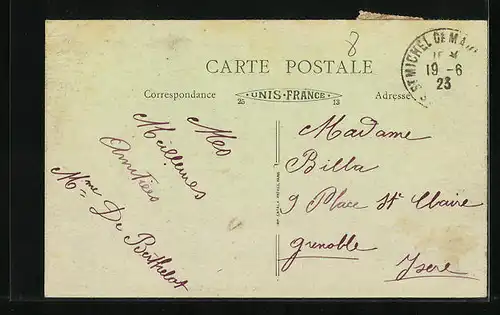 8
ST MICHEL DE MAU
19 - 6
23
CARTE POSTALE
Correspondance
25 UNIS-FRANCE 13
Adresse
Mes
Meilleures
Amitiés
Mme De Berthelot
Madame
Billa
9 Place St Claire
Grenoble
Isere